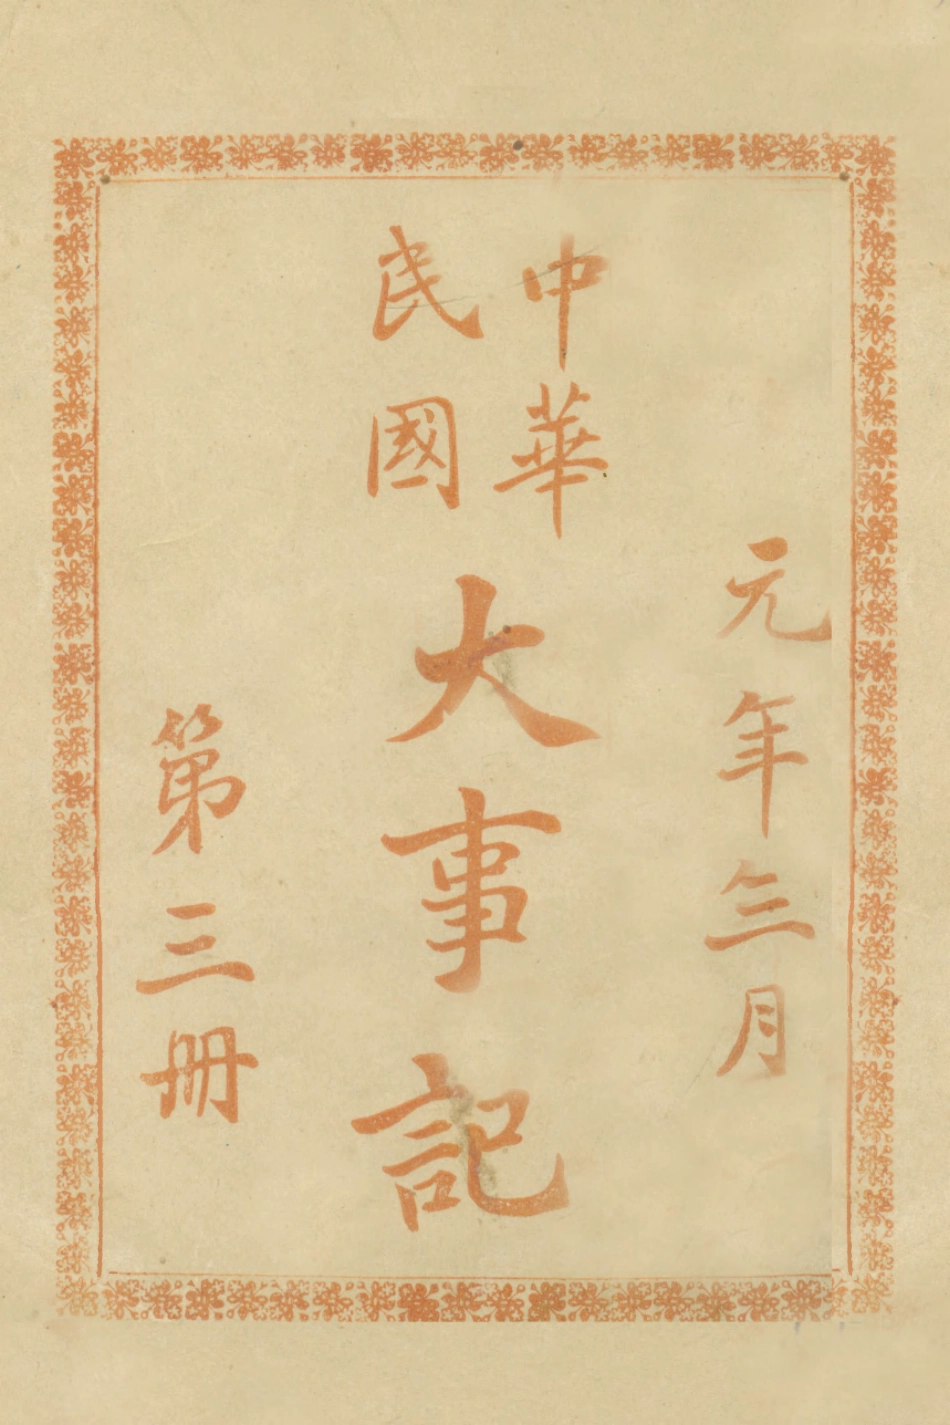 元年三月
中華
民國
大事記
第三冊